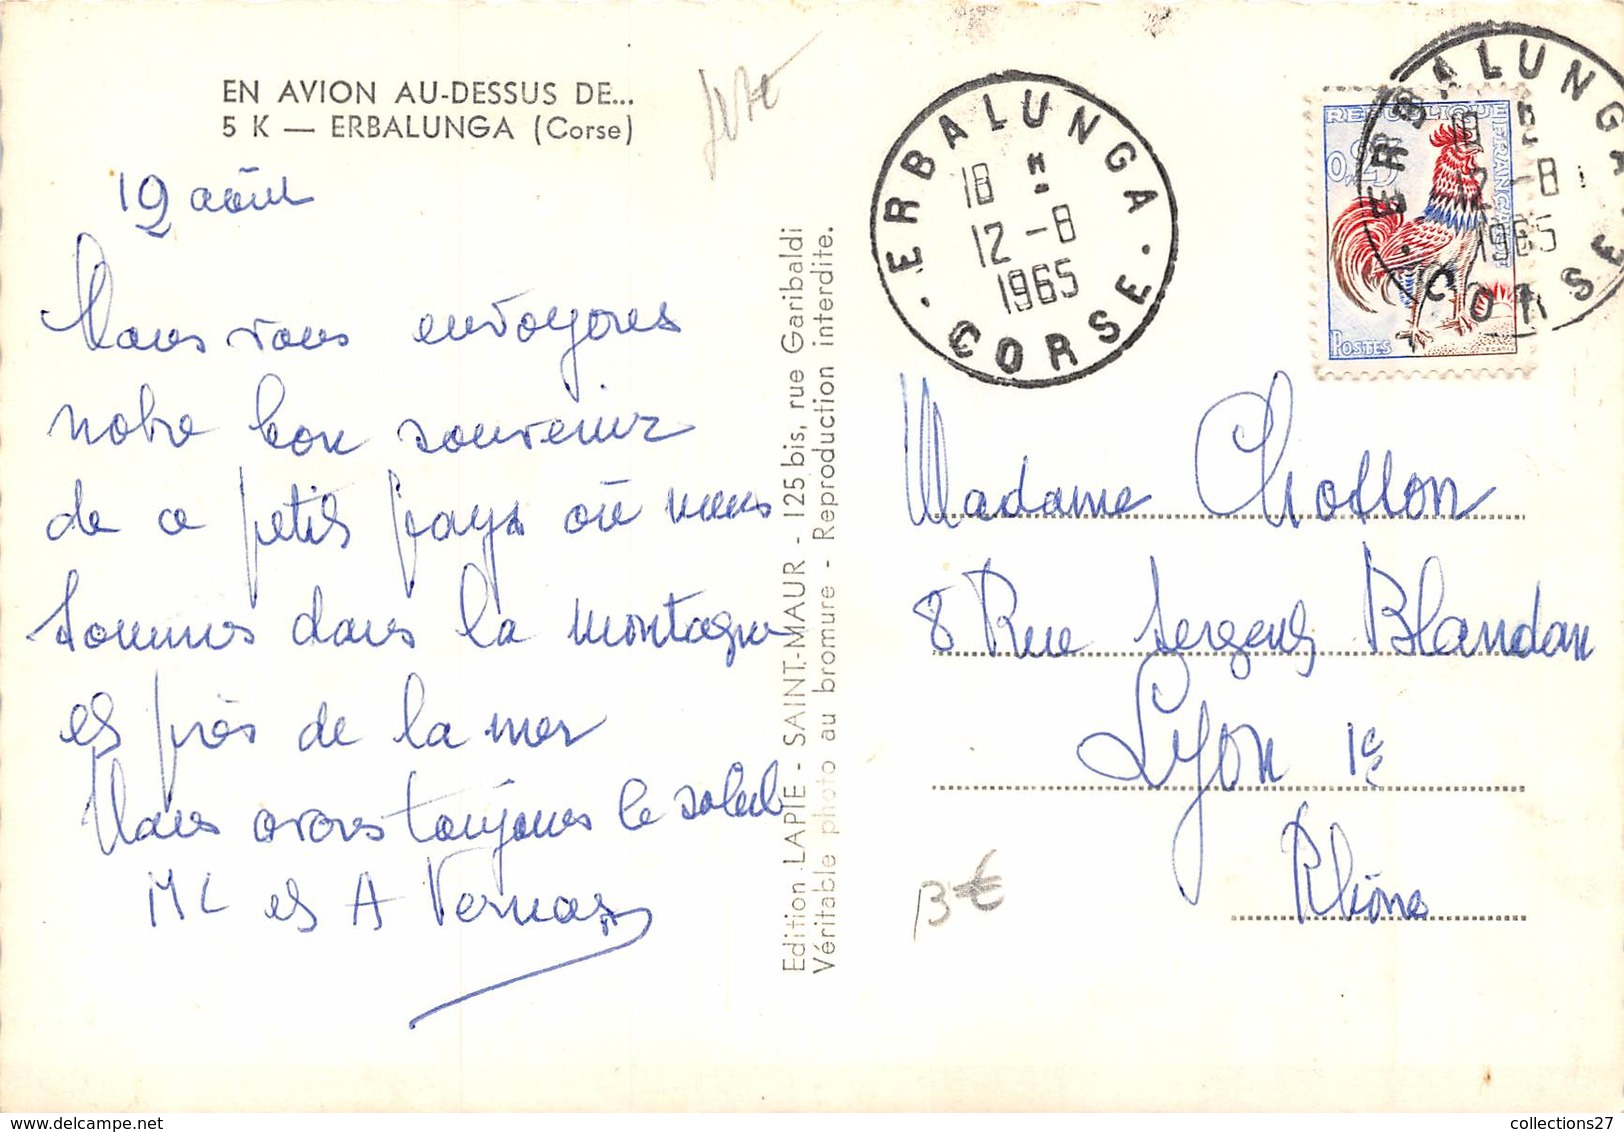 EN AVION AU-DESSUS DE...
5 K — ERBALUNGA (Corse)
12 août
Nous vous envoyons
notre bon souvenir
de ce petit pays où nous
sommes dans la montagne
et près de la mer
Nous avons toujours le soleil
ML et A Vernay
Edition LAPIE - SAINT-MAUR - 125 bis, rue Garibaldi
Véritable photo au bromure - Reproduction interdite.
ERBALUNGA
18 H
12 -8
1965
CORSE
REPUBLIQUE FRANÇAISE
0,25
POSTES
ERBALUNGA
18 H
12 -8
1965
CORSE
Madame Chollon
8 Rue Sergent Blandan
Lyon 1e
Rhône
B€
collections27